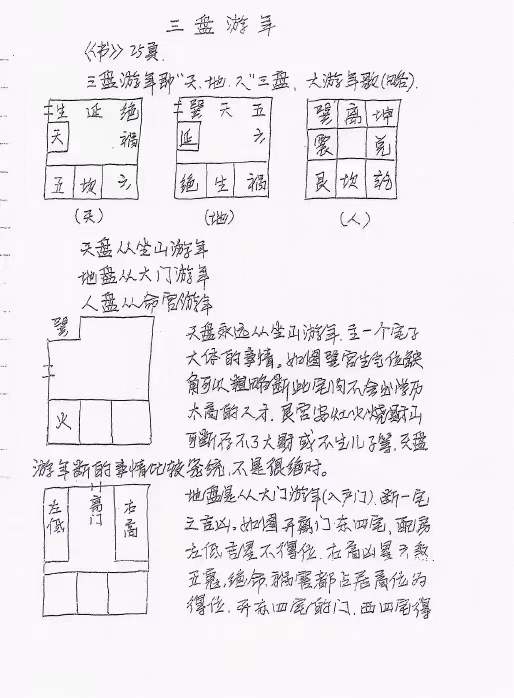 三盘游年
《书》25页.
三盘游年即"天.地.人"三盘，大游年歌(略).
生 延 绝
天 祸
五 坎 六
巽 天 五
延 六
绝 生 祸
巽 离 坤
震 兑
艮 坎 乾
(天) (地) (人)
天盘从坐山游年
地盘从大门游年
人盘从命宫游年
巽
火
天盘永远从坐山游年，主一个宅子
大体的事情。如图巽宫生气位缺
角可以粗略断此宅内不会出学历
太高的人才，艮宫 灶火烧财山
可断存不了大财或不生儿子等，天盘
游年断的事情比较笼统，不是很绝对。
左低
离门
右高
地盘是从大门游年(入户门).断一宅
之吉凶。如图开离门东四宅，配房
左低吉星不得位，右高凶星六煞
五鬼，绝命，祸害都占居高位为
得位，开东四宅的门，西四宅得